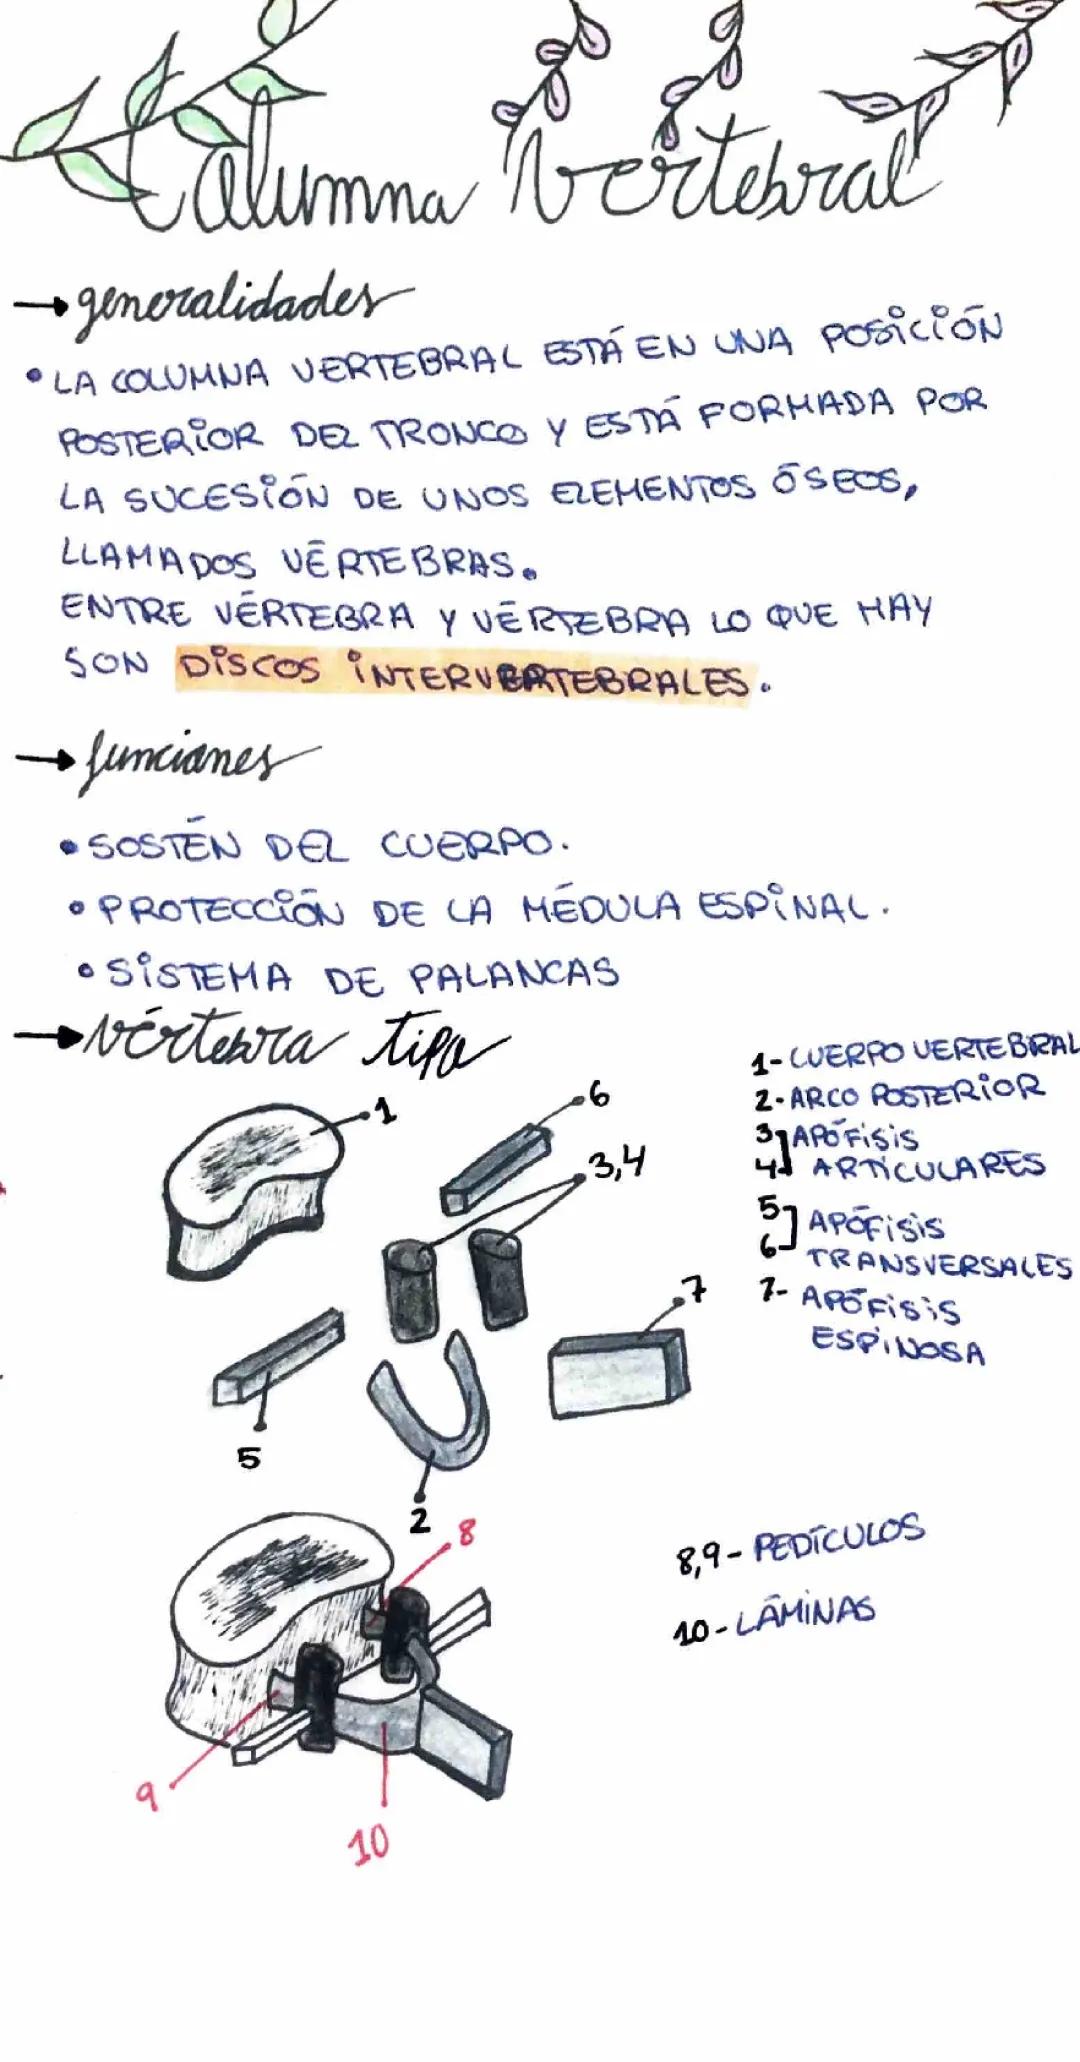 Columna Vertebral
→ generalidades
• LA COLUMNA VERTEBRAL ESTÁ EN UNA POSICIÓN
POSTERIOR DEL TRONCO Y ESTÁ FORMADA POR
LA SUCESIÓN DE UNOS ELEMENTOS ÓSEOS,
LLAMADOS VÉRTEBRAS.
ENTRE VÉRTEBRA Y VÉRTEBRA LO QUE HAY
SON DISCOS INTERVERTEBRALES.
→ funciones
• SOSTÉN DEL CUERPO.
• PROTECCIÓN DE LA MÉDULA ESPINAL.
• SISTEMA DE PALANCAS
→ Vértebra tipo
1
6
3,4
7
5
2
1- CUERPO VERTEBRAL
2- ARCO POSTERIOR
3] APÓFISIS
4] ARTICULARES
5] APÓFISIS
6] TRANSVERSALES
7- APÓFISIS
ESPINOSA
8
9
10
8,9- PEDÍCULOS
10- LÁMINAS